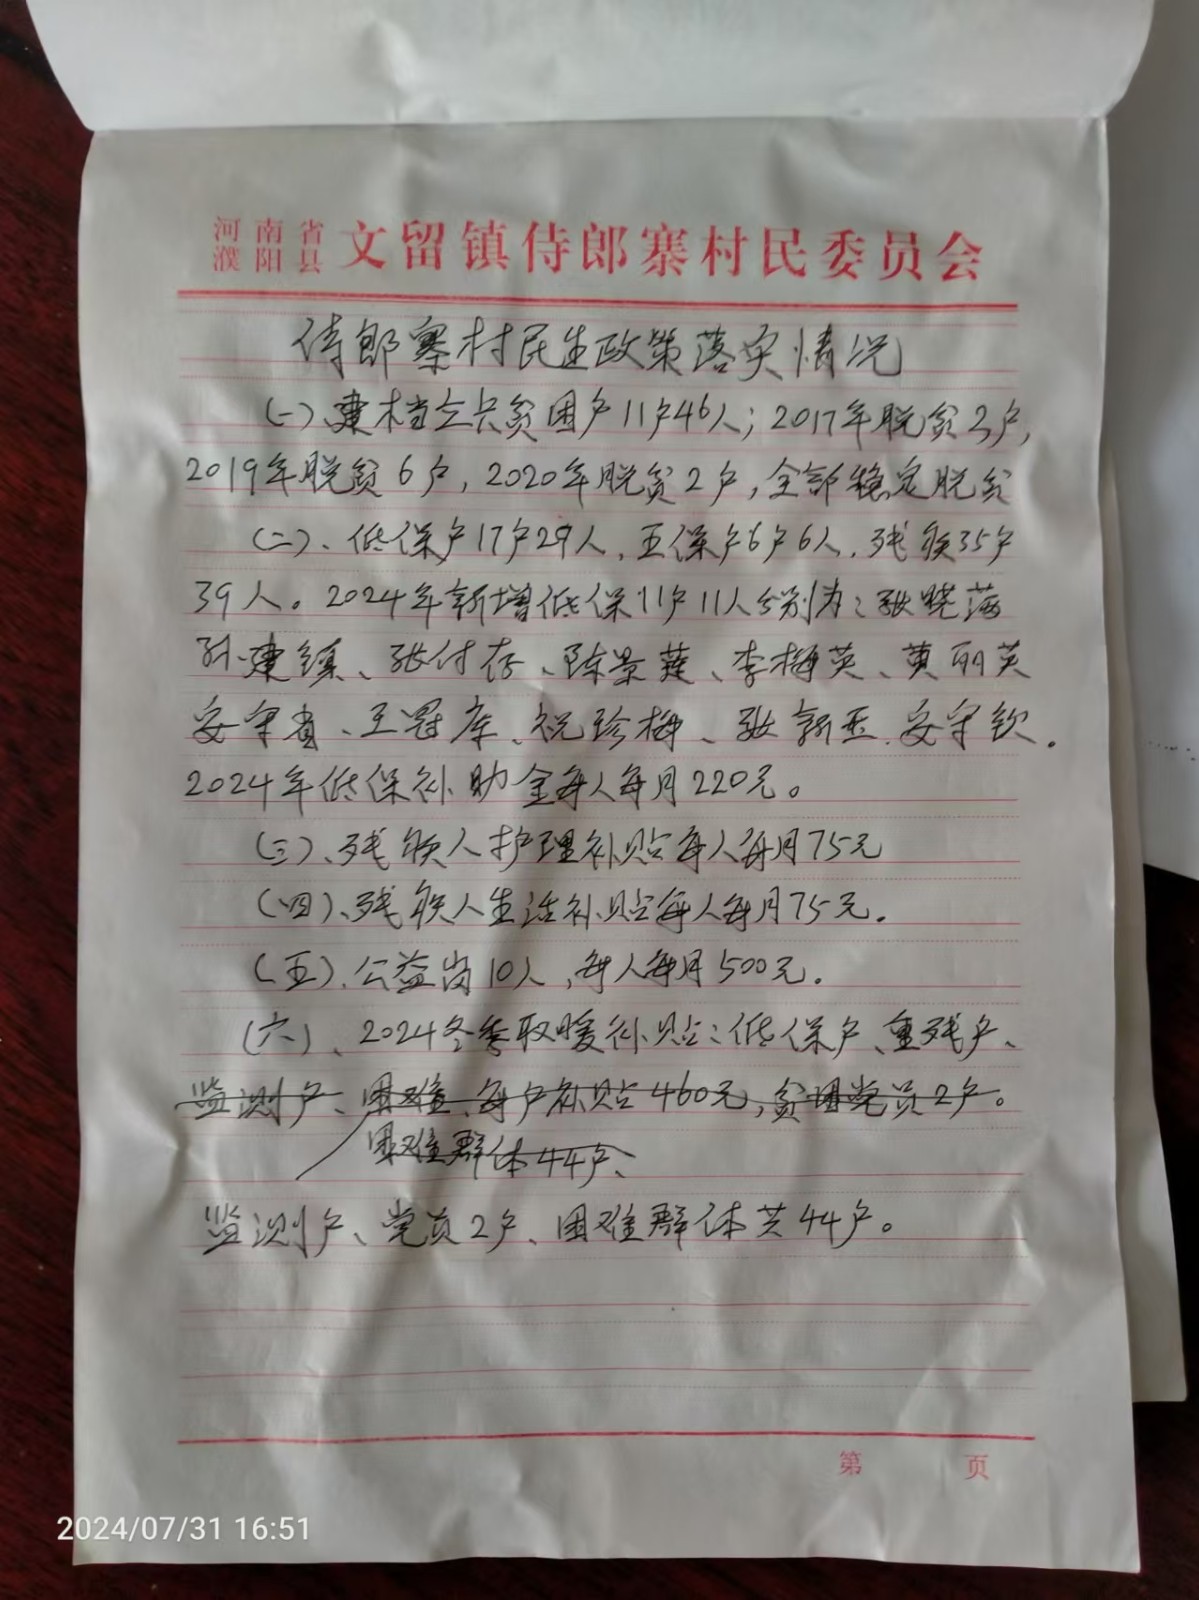 河南省
濮阳县
文留镇侍郎寨村民委员会
侍郎寨村民生政策落实情况
(一)、建档立卡贫困户11户46人；2017年脱贫3户，
2019年脱贫6户，2020年脱贫2户，全部稳定脱贫
(二)、低保户17户29人，五保户6户6人，残疾35户
39人。2024年新增低保11户11人分别为：张晓
孙建镇、张付存、陈景莲、李梅英、黄丽英
安守省、王冠库、祝珍梅、张新玉、安守钦。
2024年低保补助金每人每月220元。
(三)、残疾人护理补贴每人每月75元
(四)、残疾人生活补贴每人每月75元。
(五)、公益岗10人，每人每月500元。
(六)、2024冬季取暖补贴：低保户、重残户、
监测户、困难、每户补贴460元，贫困党员2户。
困难群体44户、
监测户、党员2户、困难群体共44户。
第 页
2024/07/31 16:51